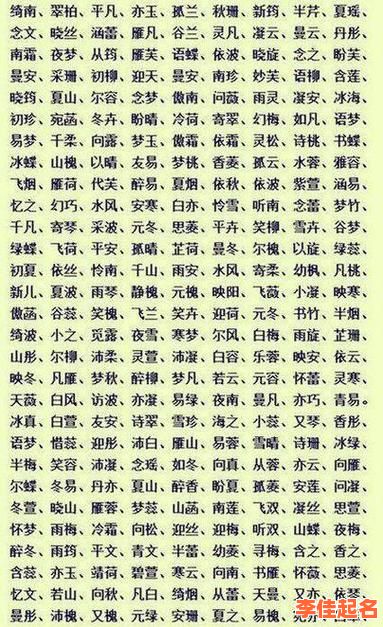 绮南、翠柏、平凡、亦玉、孤兰、秋珊、新筠、半芹、夏瑶、
念文、晓丝、涵蕾、雁凡、谷兰、灵凡、凝云、曼云、丹彤、
南霜、夜梦、从筠、雁芙、语蝶、依波、晓旋、念之、盼芙、
曼安、采珊、初柳、迎天、曼安、南珍、妙芙、语柳、含莲、
晓筠、夏山、尔容、念梦、傲南、问薇、雨灵、凝安、冰海、
初珍、宛菡、冬卉、盼晴、冷荷、寄翠、幻梅、如凡、语梦、
易梦、千柔、向露、梦玉、傲霜、依霜、灵松、诗桃、书蝶、
冰蝶、山槐、以晴、友易、梦桃、香菱、孤云、水蓉、雅容、
飞烟、雁荷、代芙、醉易、夏烟、依秋、依波、紫萱、涵易、
忆之、幻巧、水风、安寒、白亦、怜雪、听南、念蕾、梦竹、
千凡、寄琴、采波、元冬、思菱、平卉、笑柳、雪卉、谷梦、
绿蝶、飞荷、平安、孤晴、芷荷、曼冬、尔槐、以旋、绿蕊、
初夏、依丝、怜南、千山、雨安、水风、寄柔、幼枫、凡桃、
新儿、夏波、雨琴、静槐、元槐、映阳、飞薇、小凝、映寒、
傲菡、谷蕊、笑槐、飞兰、笑卉、迎荷、元冬、书竹、半烟、
绮波、小之、觅露、夜雪、寒梦、尔风、白梅、雨旋、芷珊、
山彤、尔柳、沛柔、灵萱、沛凝、白容、乐蓉、映安、依云、
映冬、凡雁、梦秋、醉柳、梦凡、若云、元容、怀蕾、灵寒、
天薇、白风、访波、亦凝、易绿、夜南、曼凡、亦巧、青易。
冰真、白萱、友安、诗翠、雪珍、海之、小蕊、又琴、香彤、
语梦、惜蕊、迎彤、沛白、雁山、易蓉、雪晴、诗珊、冰绿、
半梅、笑容、沛凝、念瑶、如冬、向真、从蓉、亦云、向雁、
尔蝶、冬易、丹亦、夏山、醉香、盼夏、孤菱、安莲、问凝、
冬萱、晓山、雁蓉、梦蕊、山菡、南莲、飞双、凝丝、思萱、
怀梦、雨梅、冷霜、向松、迎丝、迎梅、听双、山蝶、夜梅、
醉冬、雨筠、平文、青文、半蕾、幼菱、寻梅、含之、香之、
含蕊、亦玉、靖荷、碧萱、寒云、向南、书雁、怀薇、思菱、
忆文、若山、向秋、凡白、绮烟、从蕾、天曼、又亦、依琴、
曼彤、沛槐、又槐、元绿、安珊、夏之、易槐、
李佳起名